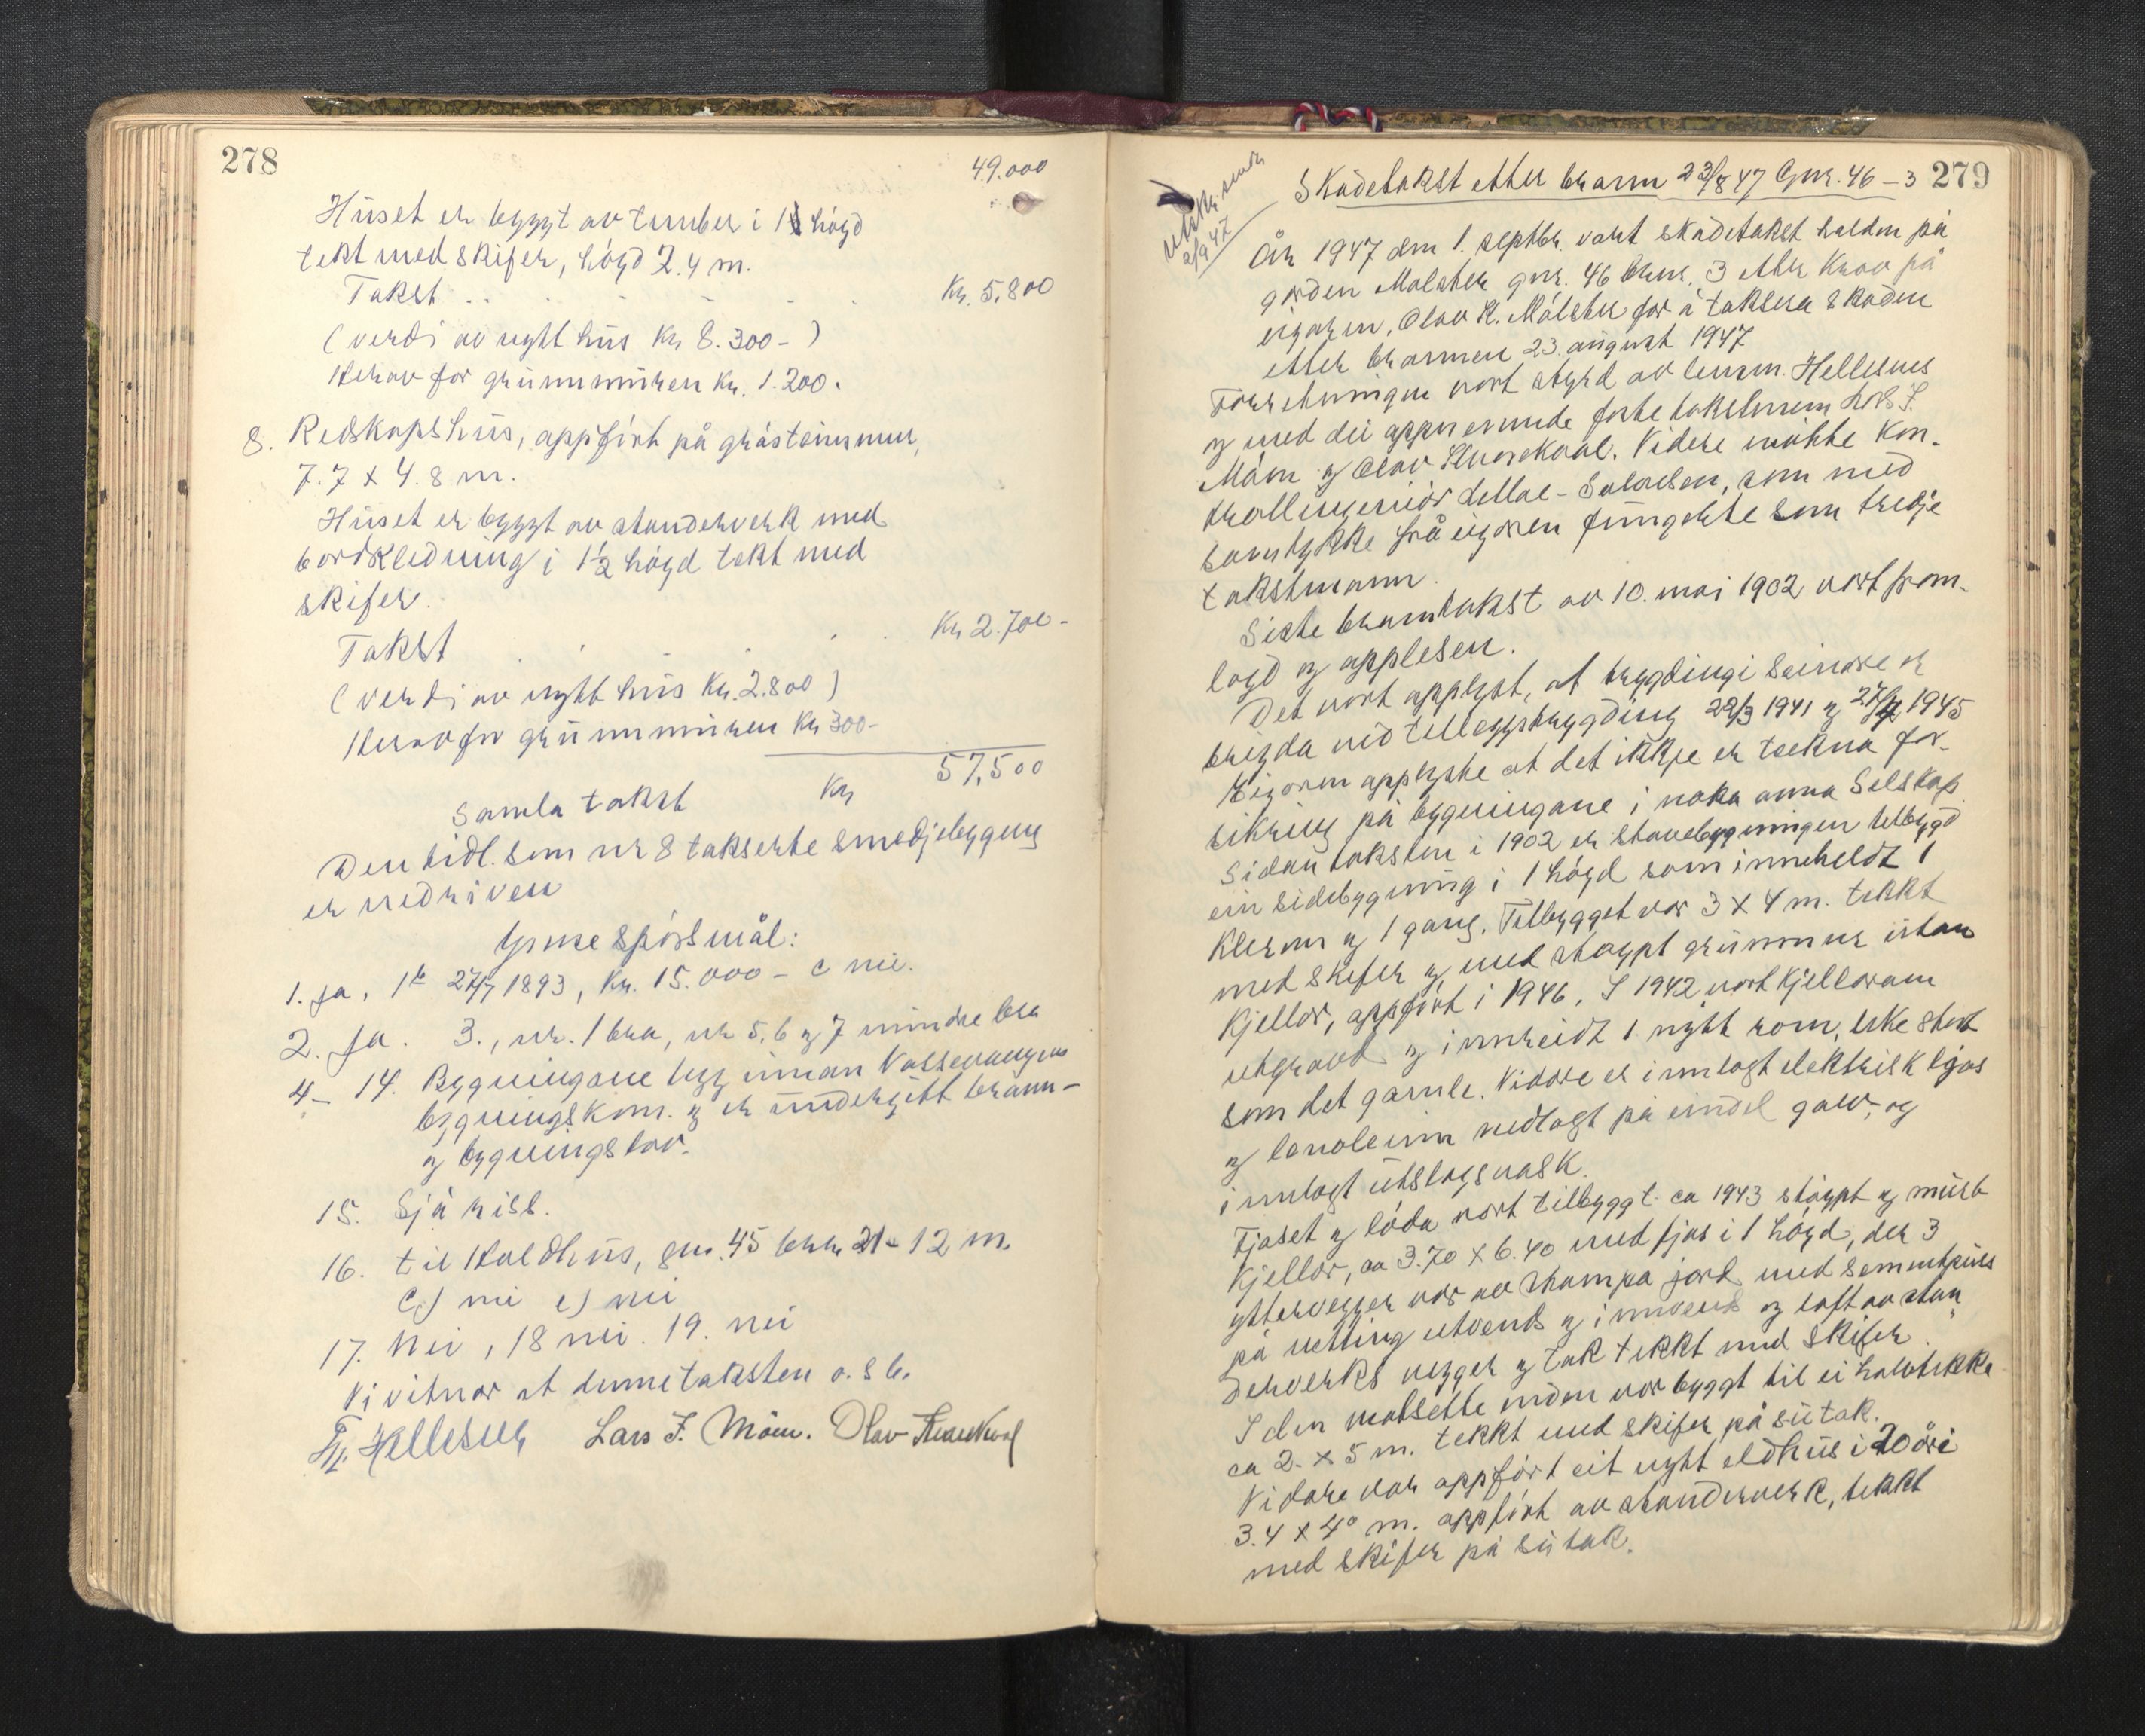 278
49.000
Huset er bygt av tømber i 1 høgd
tekt med skifer, høgd 2.4 m.
Takst . . . . . . Kr. 5.800
(verdi av nytt hus Kr 8.300 - )
Herav for grunnmuren Kr. 1.200.
8. Redskapshus, oppført på gråsteinsmur,
7.7 x 4.8 m.
Huset er byggt av standerverk med
bordkledning i 1½ høgd tekt med
skifer.
Takst . . . . Kr 2.700 -
(verdi av nytt hus Kr. 2.800)
Herav for grunnmuren Kr 300 -
Samla takst Kr 57.500
Den tidl. som nr 8 takserte smedjebygning
er nedriven
Ymse spørsmål:
1. Ja, 1 b 27/7 1893, Kr. 15.000 - c nei.
2. Ja. 3., nr. 1 bra, nr 5, 6 og 7 mindre bra
4 - 14. Bygningane ligg innan Vossevangen
bygningskom. og er undergitt brann-
og bygningslov.
15. Sjå riss.
16. til Haldhus, gnr. 45 brnr 21 - 12 m.
c) nei e) nei
17. Nei, 18 nei. 19. nei
Vi vitnar at denne taksten o. s b.
Hellesnes Lars J. Møen. Olav
Utskr. send
2/9 47
Skadetakst etter brann 23/8 47 Gnr. 46 - 3 279
År 1947 den 1. septbr. vart skadetakst halden på
garden Mølster gnr. 46 brnr. 3 etter krav på
eigaren, Olav K. Mølster for å taksera skaden
etter brannen 23. august 1947
Forretningen vart styrd av lensm. Hellesnes
og med dei oppnemnde faste takstmenn Lars J.
Møen og Olav. Videre møtte Kon-
trollingeniør, som med
samtykke frå eigaren fungerte som tredje
takstmann.
Siste branntakst av 10. mai 1902 vart fram-
lagd og opplesen.
Det vart opplyst, at trygdingi seinare er
brigda ved tilleggstrygding 22/3 1941 og 1945
Eigaren opplyste at det ikkje er teikna for-
sikring på bygningane i noka anna Selskap
Sidan taksten i 1902 er stovebygningen tilbygd
ein sidebygning i 1 høgd som inneheldt 1
Klerom og 1 gang. Tilbygget var 3 x 4 m. tekkt
med skifer og med støypt grunnmur utan
kjellar, oppført i 1946. I 1942 vart kjellaren
utgravd og innreidt 1 nytt rom, like stort
som det gamle. Vidare er innlagt elektrisk ljos
og lenoleum nedlagt på eindel golv, og
innlagt utslagsvask.
Fjøset og løda vart tilbyggt ca 1943 støypt og mura
Kjellar, ca 3.70 x 6.40 med fjøs i 1 høgd, der 3
yttervegger var av stampa jord med sementpuss
på netting utvends og innvends og loft av stan-
derverks vegger og tak tekkt med skifer.
I den motsette enden var byggt til ei halvtekkja
ca 2. x 5 m. tekkt med skifer på sutak.
Vidare var oppført eit nytt eldhus i 20 åri
3.4 x 4° m. oppført av standerverk, tekkt
med skifer på sutak.